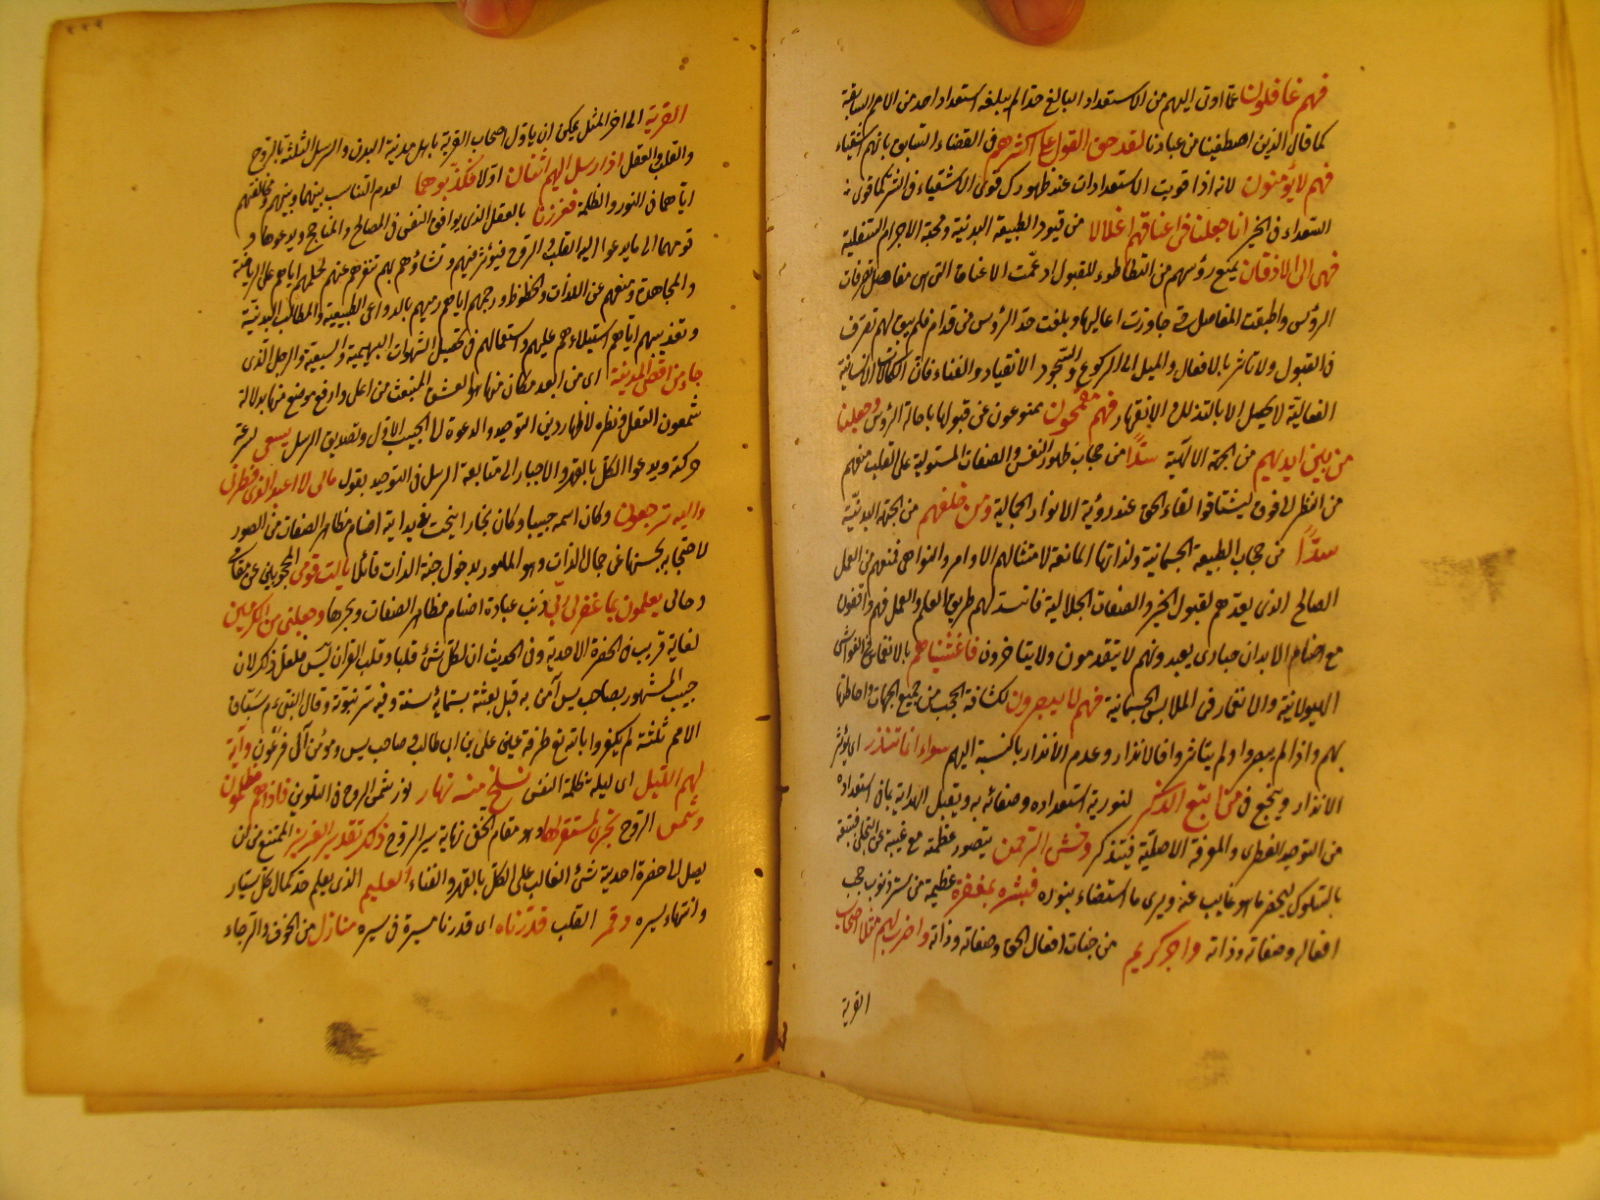 فهم غافلون عما اوتى اليهم من الاستعداد البالغ حدا لم يبلغه استعداد احد من الامم السابقة
كما قال الذين اصطفينا من عبادنا لقد حق القول على اكثرهم فى القضاء السابق بانهم اشقياء
فهم لا يؤمنون لانه اذا قويت الاستعدادات عند ظهورك قوى الاشقياء فى الشر كما قوى
السعداء فى الخير انا جعلنا فى اعناقهم اغلالا من قيود الطبيعة البدنية ومحبة الاجرام السفلية
فهى الى الاذقان يمنع رؤسهم من التطاطوء للقبول اذ عمت الاعناق التى هى مفاصل تصرفات
الرؤس واطبقت المفاصل حتى جاوزت اعاليها وبلغت حد الرؤس من قدام فلم يبق لهم تصرف
فى القبول ولا تاثر بالافعال والميل الى الركوع والسجود الانقياد والفناء فان الكمالات الانسانية
الفعالية لا يحصل الا بالتذلل والانقهار فهم مقمحون ممنوعون عن قبولها باحالة الرؤس وجعلنا
من بين ايديهم من الجهة الالهية سدا من حجاب ظهور النفس والصفات المستولية على القلب منعهم
من النظر الى فوق ليشتاقوا لقاء الحق عند رؤية الانوار الجمالية ومن خلفهم من الجهة البدنية
سدا من حجاب الطبيعة الجسمانية ولذاتها المانعة لامتثالهم الاوامر والنواهى فمنعهم من العمل
الصالح الذى يعدهم لقبول الخير والصفات الجلالية فانسد لهم طريق العلم والعمل فهم واقفون
مع اصنام الابدان حيارى يعبدونهم لا يتقدمون ولا يتاخرون فاغشيناهم بالانغماس فى الغواشى
الهيولانية والانغمار فى الملابس الجسمانية فهم لا يبصرون لكثافة الحجب من جميع الجهات واحاطتها
بهم واذا لم يبصروا ولم يتاثروا فالانذار وعدم الانذار بالنسبة اليهم سواء انما تنذر اى يؤثر
الانذار وينجع فى من اتبع الذكر لنورية استعداده وصفائه به ويقبل الهداية بما فى استعداده
من التوحيد الفطرى والمعرفة الاصلية فيتذكر وخشى الرحمن بتصور عظمته مع غيبته عن التجلى فيتبعه
بالسلوك ليحضر ما هو غايب عنه ويرى ما استضاء بنوره فبشره بمغفرة عظيمة من ستر ذنوب حجب
افعاله وصفاته وذاته واجر كريم من جنات افعال الحق وصفاته وذاته واضرب لهم مثلا اصحاب
القرية
القرية الى اخر المثل يمكن ان ياول اصحاب القرية باهل مدينة البدن والرسل الثلثة بالروح
والقلب والعقل اذ ارسل اليهم اثنان اولا فكذبوهما لعدم التناسب بينهما وبينهم ومخالفتهم
اياهما فى النور والظلمة فعززنا بالعقل الذى يوافق النفس فى المصالح والمناجح ويدعوها و
قومها الى ما يدعو اليه القلب والروح فيؤثر فيهم وتشاؤهم بهم تنفرهم عنهم لحملهم اياهم على الرياضة
والمجاهدة ومنعهم عن اللذات والحظوظ ورجمهم اياهم رميهم بالدواعى الطبيعية والمطالب البدنية
وتعذيبهم اياهم استيلاءهم عليهم واستعمالهم فى تحصيل الشهوات البهيمية والسبعية والرجل الذى
جاء من اقصى المدينة اى من ابعد مكان منها هو العشق المنبعث من اعلى وارفع موضع منها بدلالة
شمعون العقل ونظره لاظهار دين التوحيد والدعوة الى الحبيب الاول وتصديق الرسل يسعى لسرعة
حركته ويدعو الكل بالقهر والاجبار الى متابعة الرسل فى التوحيد بقول مالى لا اعبد الذى فطرنى
واليه ترجعون وكان اسمه حبيبا وكان نجارا ينحت فى بدايته اصنام مظاهر الصفات من الصور
لاحتجابه بحسنها عن جمال الذات وهو المامور بدخول جنة الذات قائلا ياليت قومى المحجوبين عن مقامى
وحالى يعلمون بما غفر لى ربى ذنب عبادة اصنام مظاهر الصفات ونحرها وجعلنى من المكرمين
لغاية قربى فى الحضرة الاحدية وفى الحديث ان لكل شئ قلبا وقلب القران يس فلعل ذلك لان
حبيب المشهور بصاحب يس آمن به قبل بعثته بستماية سنة وفهم سر نبوته وقال النبى ع م سباق
الامم ثلثة لم يكفروا بالله طرفة عين على بن ابى طالب وصاحب يس ومؤمن آل فرعون وآية
لهم الليل اى ليل ظلمة النفس نسلخ منه نهار نور شمس الروح فى التلوين فاذا هم مظلمون
وشمس الروح تجرى لمستقر لها وهو مقام الحق نهاية سير الروح ذلك تقدير العزيز الممتنع من ان
يصل الى حضرة احديته شئ الغالب على الكل بالقهر والفناء العليم الذى يعلم حد كمال كل سيار
وانتهاء سيره وقمر القلب قدرناه اى قدرنا مسيره فى سيره منازل من الخوف والرجاء